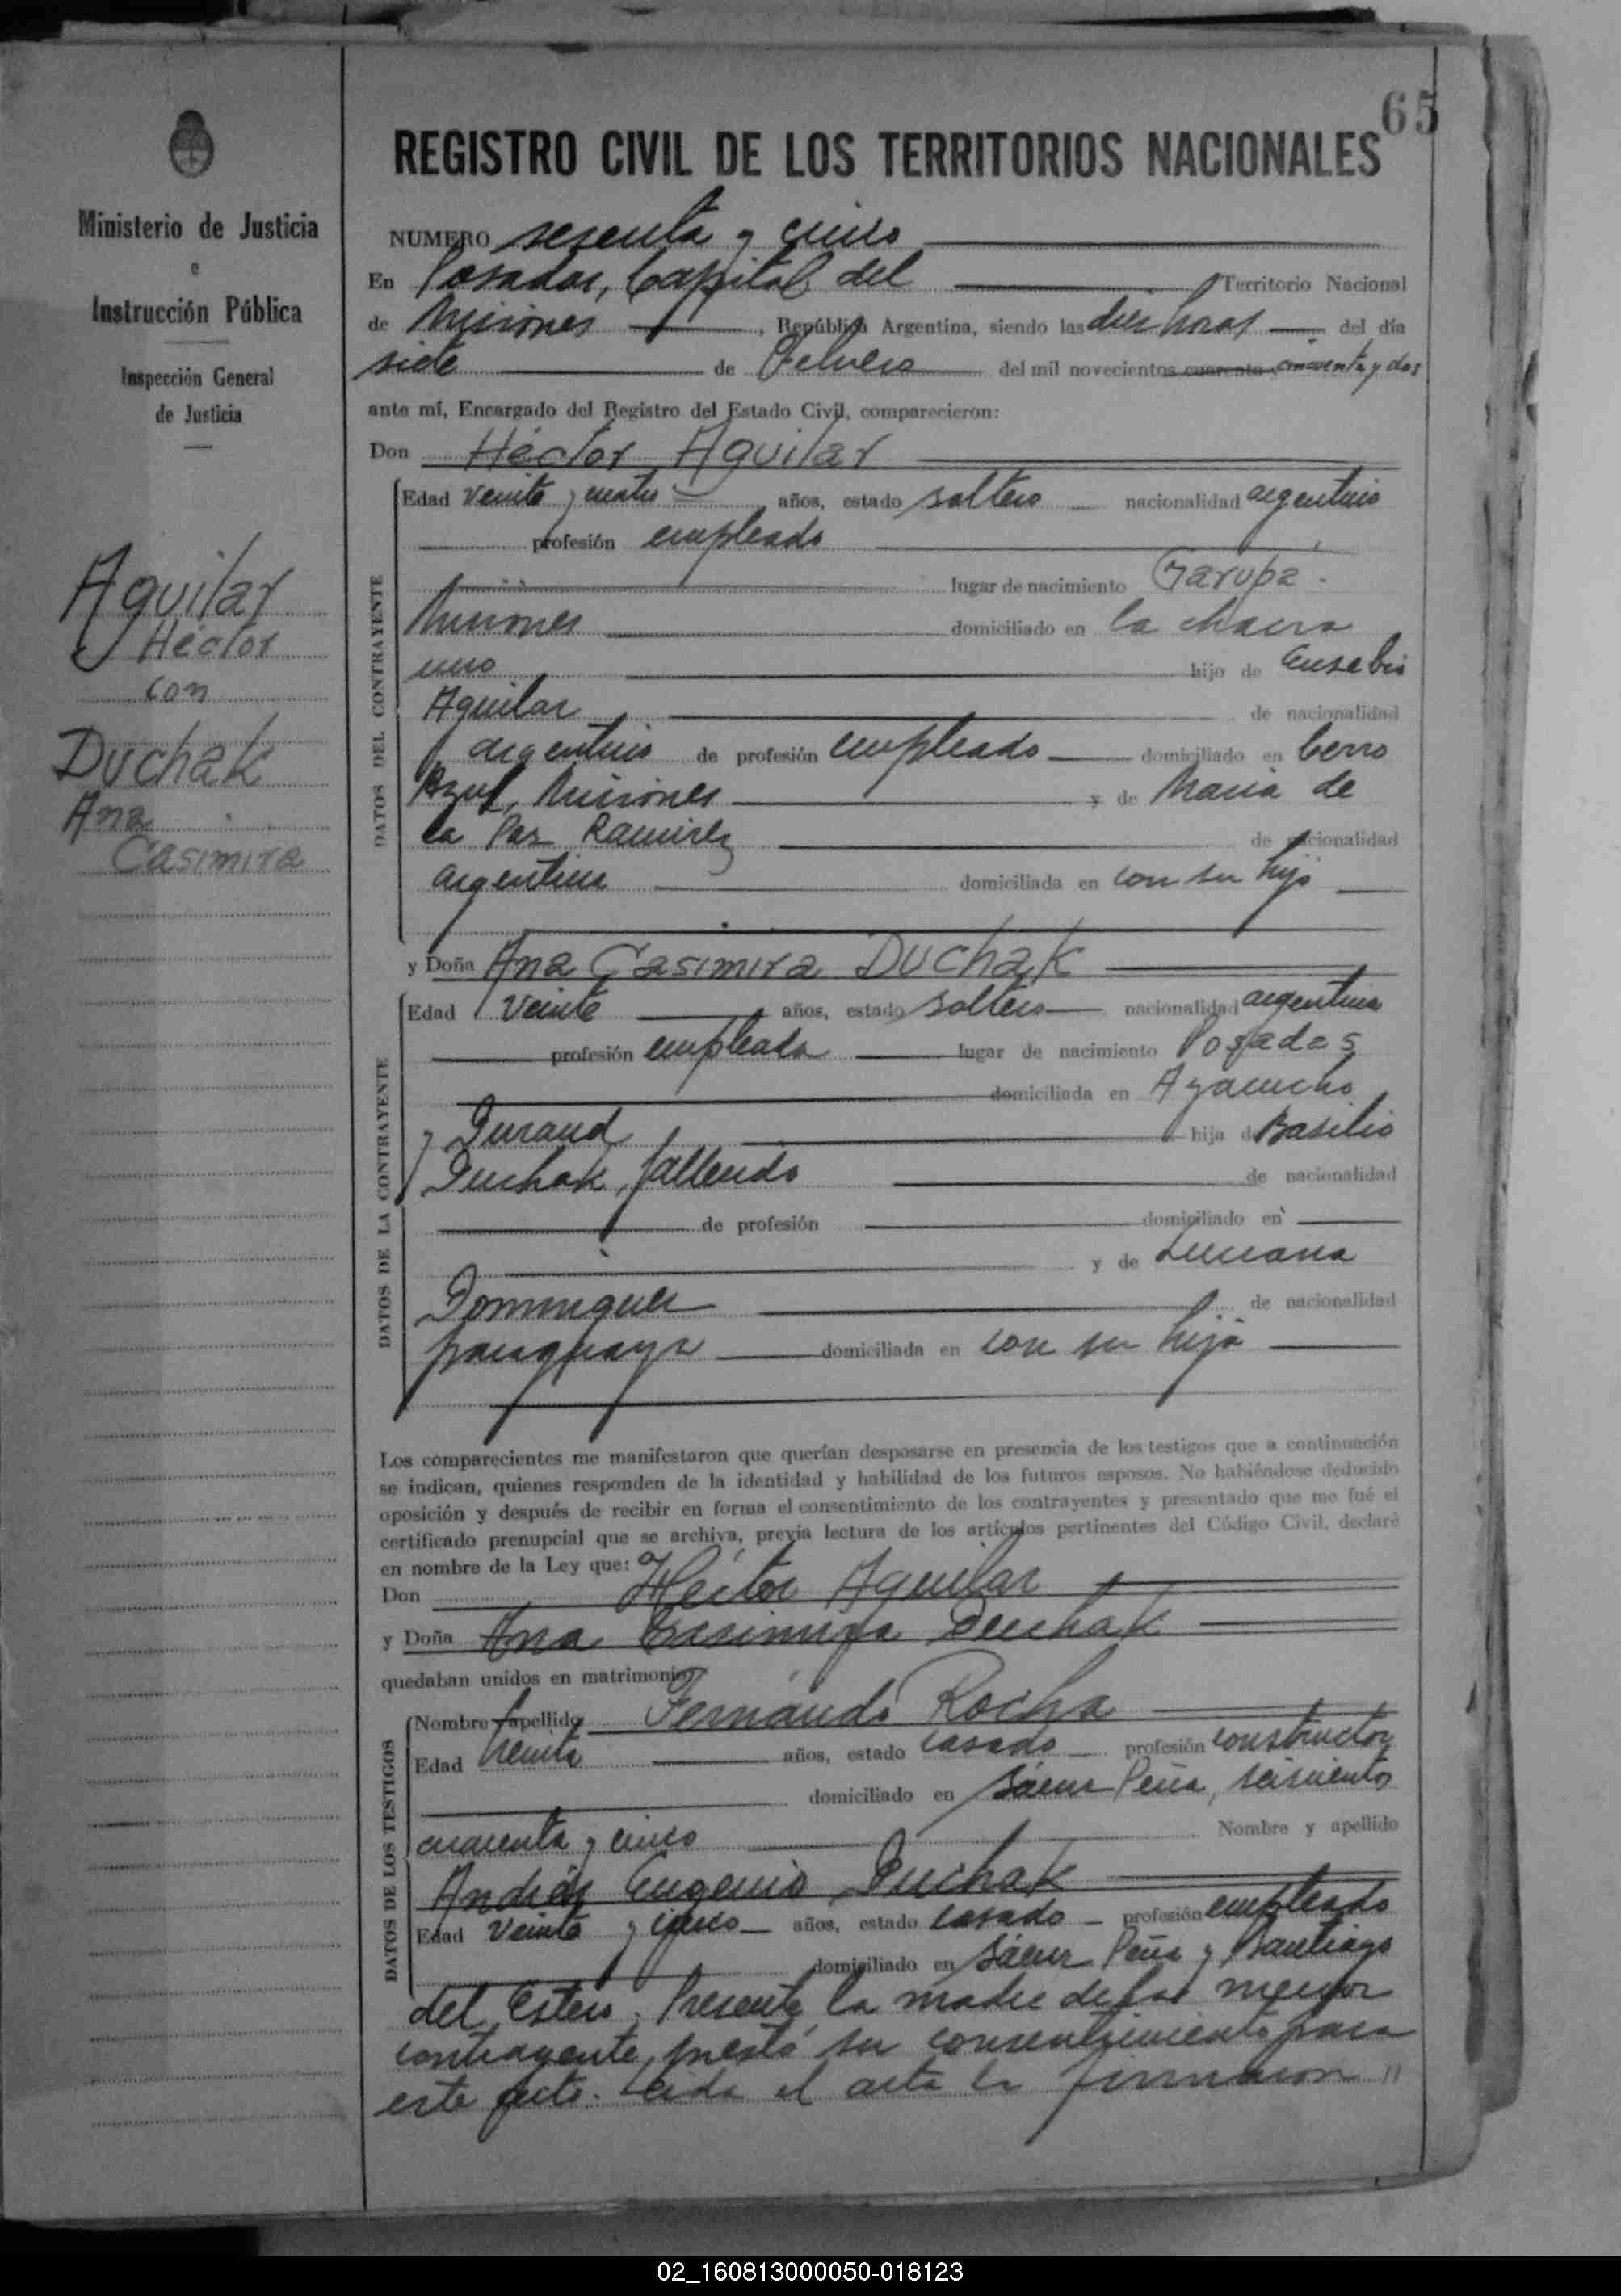 65
REGISTRO CIVIL DE LOS TERRITORIOS NACIONALES
Ministerio de Justicia
e
Instrucción Pública
Inspección General
de Justicia
Aguilar
Héctor
con
Duchak
Ana
Casimira
NUMERO sesenta y cinco
En Posadas, Capital del Territorio Nacional
de Misiones, República Argentina, siendo las diez horas del día
siete de Febrero del mil novecientos cuarenta cincuenta y dos
ante mí, Encargado del Registro del Estado Civil, comparecieron:
Don Héctor Aguilar
DATOS DEL CONTRAYENTE
Edad veinte y cuatro años, estado soltero nacionalidad argentino
profesión empleado
lugar de nacimiento Garupá.
Misiones domiciliado en la chacra
uno hijo de Eusebio
Aguilar de nacionalidad
argentino de profesión empleado domiciliado en Cerro
Azul, Misiones y de Maria de
la Paz Ramirez de nacionalidad
argentina domiciliada en con su hijo
y Doña Ana Casimira Duchak
DATOS DE LA CONTRAYENTE
Edad veinte años, estado soltera nacionalidad argentina
profesión empleada lugar de nacimiento Posadas
domiciliada en Ayacucho
y Durand hija de Basilio
Duchak, fallecido de nacionalidad
de profesión domiciliado en
y de Luciana
Dominguez de nacionalidad
paraguaya domiciliada en con su hija
Los comparecientes me manifestaron que querían desposarse en presencia de los testigos que a continuación
se indican, quienes responden de la identidad y habilidad de los futuros esposos. No habiéndose deducido
oposición y después de recibir en forma el consentimiento de los contrayentes y presentado que me fué el
certificado prenupcial que se archiva, previa lectura de los artículos pertinentes del Código Civil, declaré
en nombre de la Ley que:
Don Héctor Aguilar
y Doña Ana Casimira Duchak
quedaban unidos en matrimonio
DATOS DE LOS TESTIGOS
Nombre y apellido Fernando Rocha
Edad treinta años, estado casado profesión constructor
domiciliado en Sáenz Peña, seiscientos
cuarenta y cinco Nombre y apellido
Andrés Eugenio Duchak
Edad veinte y cinco años, estado casado profesión empleado
domiciliado en Sáenz Peña y Santiago
del Estero. Presente la madre de la menor
contrayente, prestó su consentimiento para
este acto. Leida el acta la firmaron
02_160813000050-018123